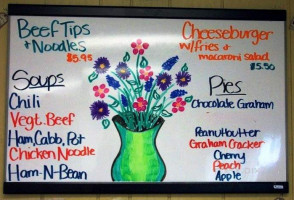 Beef Tips
+ Noodles
$5.95
Cheeseburger
w/fries +
macaroni salad
$5.50
Soups
Chili
Vegt. Beef
Ham, Cabb, Pot
Chicken Noodle
Ham-N-Bean
Pies
Chocolate Graham
Peanutbutter
Graham Cracker
Cherry
Peach
Apple